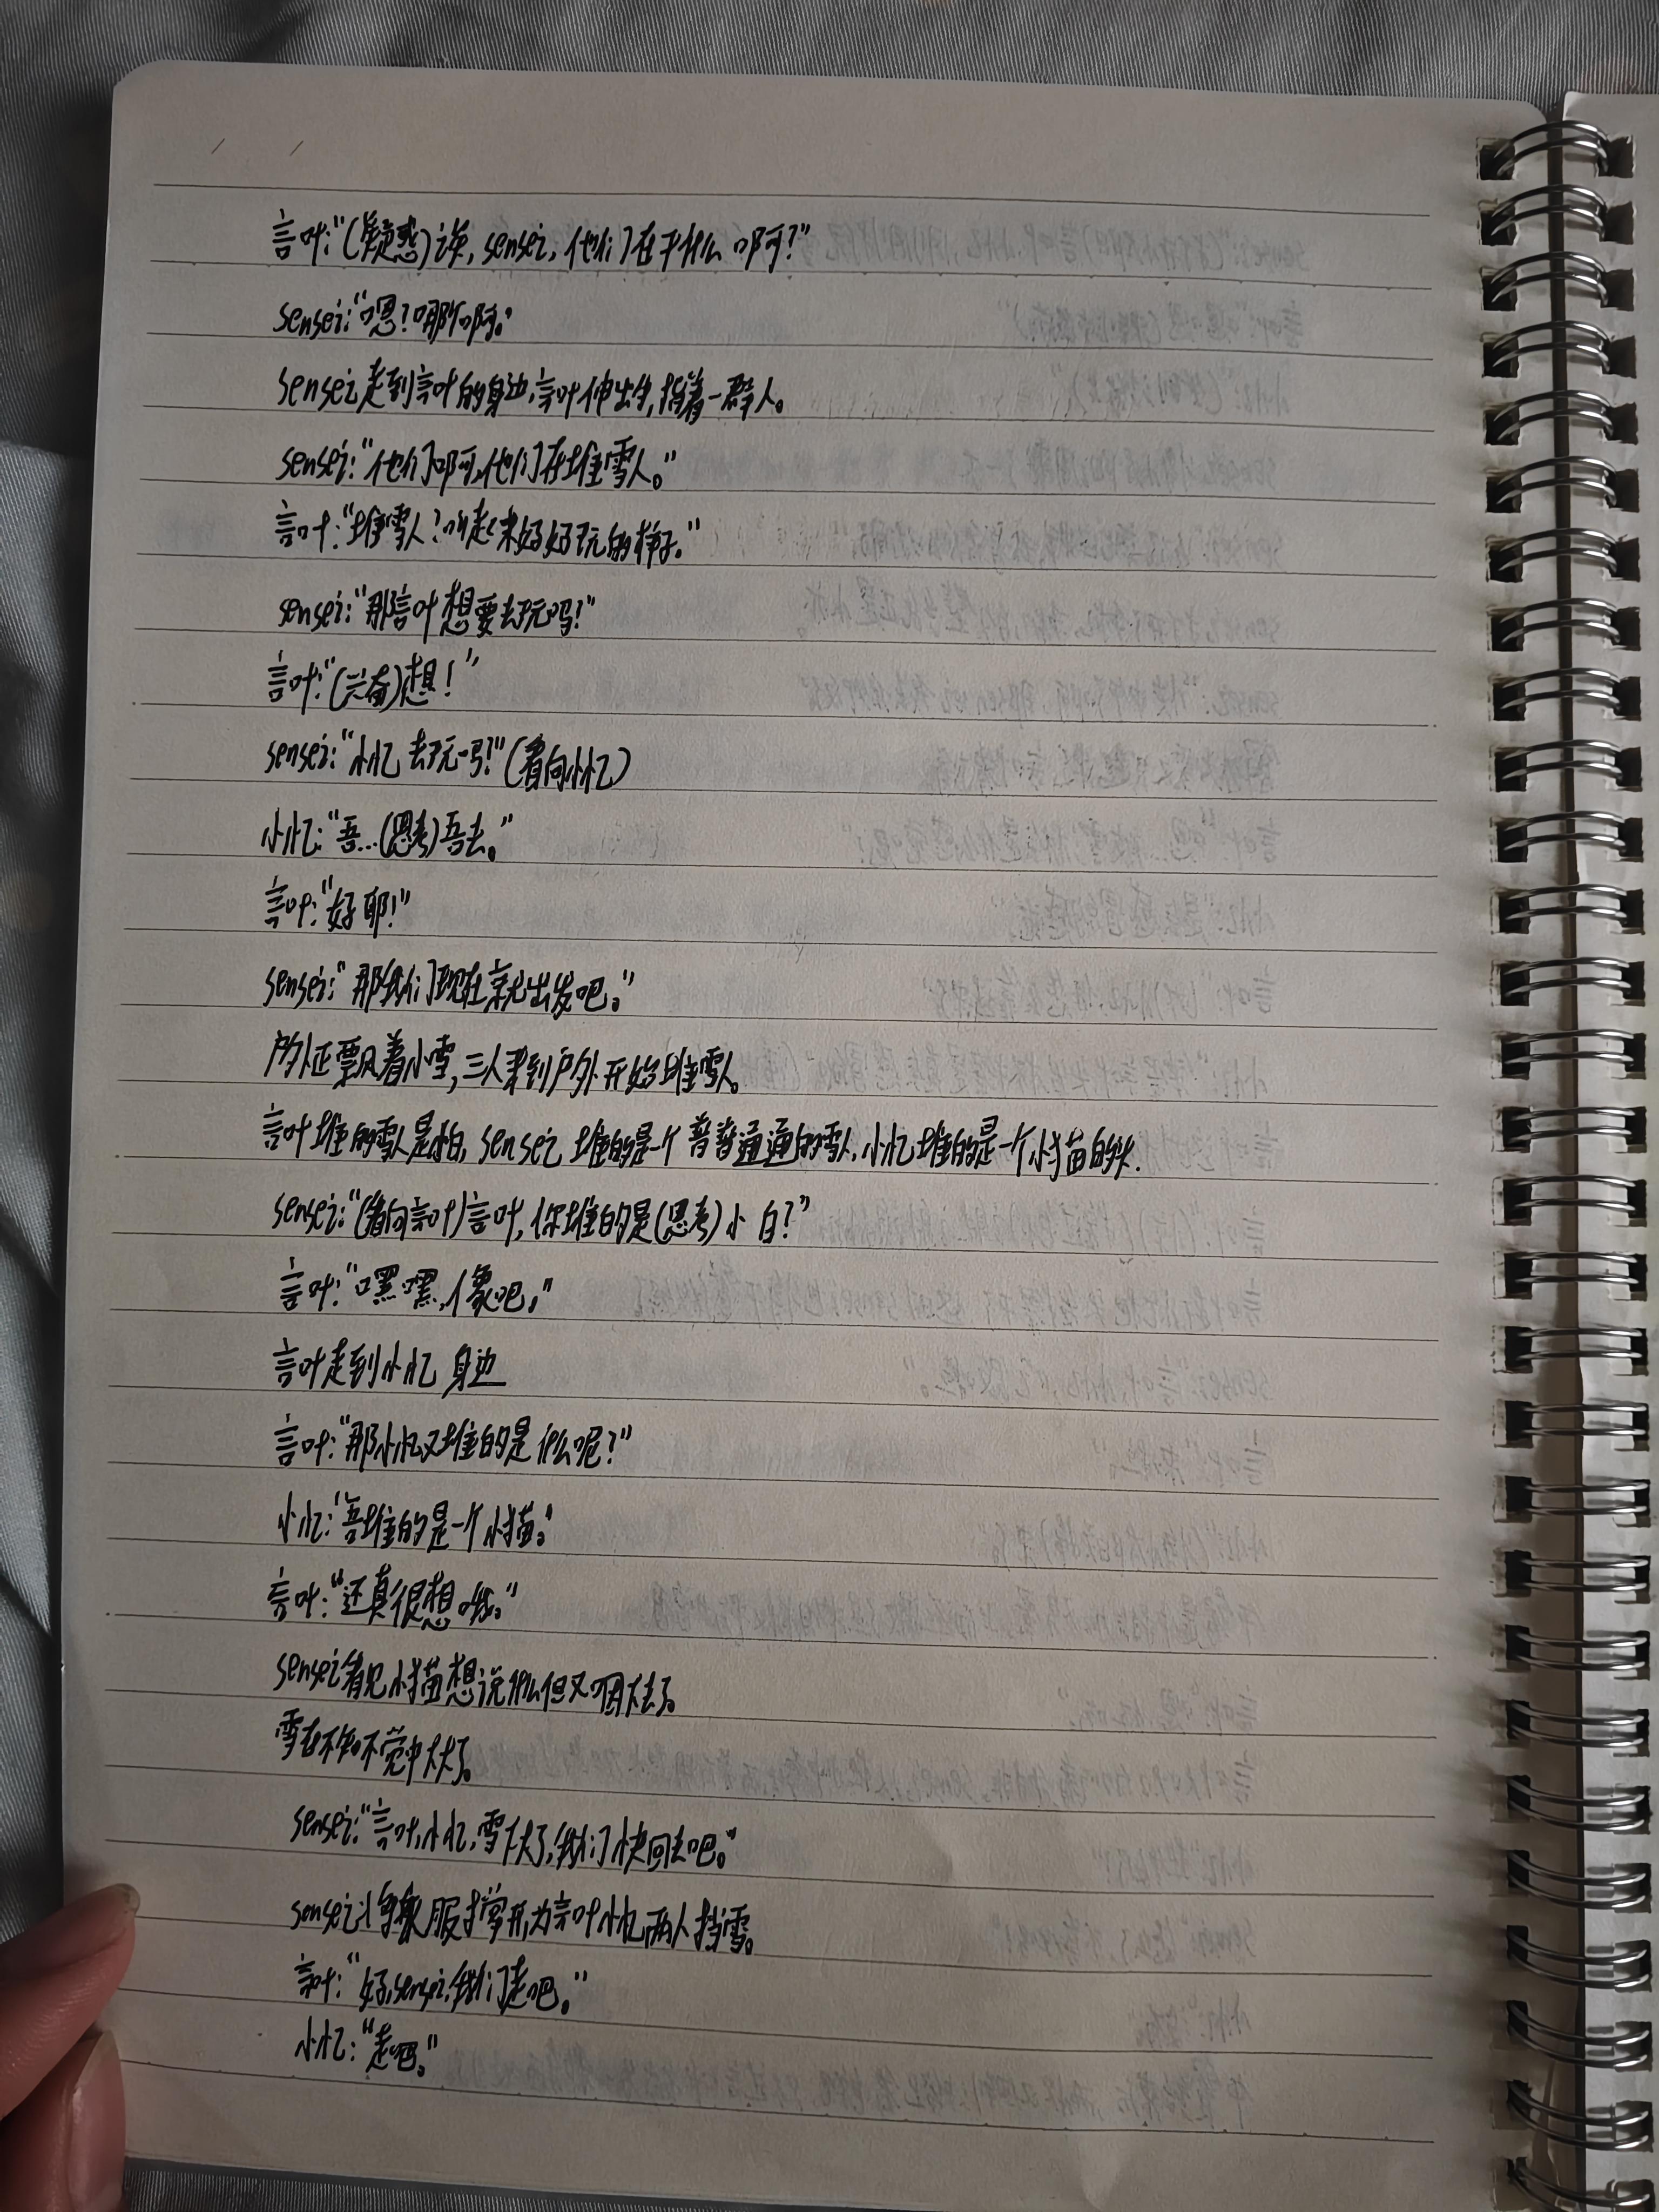 言叶:"(疑惑)诶,sensei,他们在干什么啊?"
sensei:"嗯?哪个啊。"
sensei走到言叶的身边,言叶伸出手,指着一群人。
sensei:"他们啊,他们在堆雪人。"
言叶:"堆雪人?听起来好好玩的样子。"
sensei:"那言叶想要去玩吗?"
言叶:"(兴奋)想!"
sensei:"小忆去玩吗?"(看向小忆)
小忆:"吾...(思考)吾去。"
言叶:"好耶!"
sensei:"那我们现在就出发吧。"
户外正飘着小雪,三人来到户外开始堆雪人。
言叶堆的雪人是小白,sensei堆的是一个普普通通的雪人,小忆堆的是一个小猫的头.
sensei:"(看向言叶)言叶,你堆的是(思考)小白?"
言叶:"嘿嘿,像吧。"
言叶走到小忆身边
言叶:"那小忆又堆的是什么呢?"
小忆:"吾堆的是一个小猫。"
言叶:"还真很想哦。"
sensei看见小猫想说什么但又咽下去了。
雪在不知不觉中下大了。
sensei:"言叶,小忆,雪下大了,我们快回去吧。"
sensei将衣服撑开,为言叶小忆两人挡雪。
言叶:"好,sensei,我们走吧。"
小忆:"走吧。"